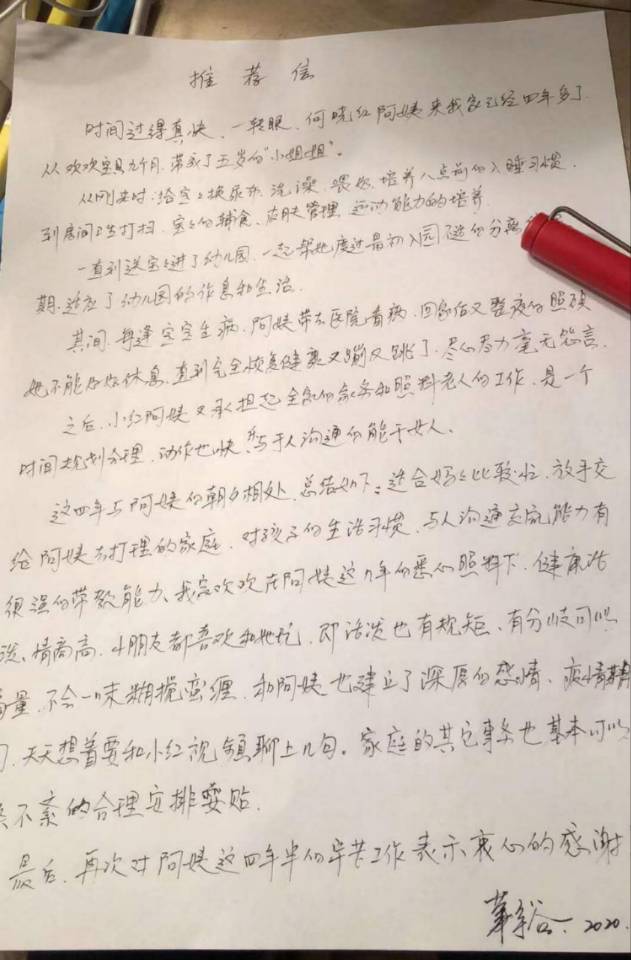 推荐信
时间过得真快、一转眼、何晓红阿姨来我家已经四年多了.
从欢欢宝贝九个月.带到了五岁的“小姐姐”。
从刚来时:给宝宝换尿布、洗澡、喂奶、培养八点前的入睡习惯.
到房间卫生打扫、宝宝的辅食、皮肤管理、运动能力的培养.
一直到送宝宝进了幼儿园、一起帮她度过最初入园不适的分离
期.适应了幼儿园的作息和生活.
其间、每逢宝宝生病、阿姨带去医院看病、回家后又整夜的照顾
她不能好好休息、直到完全恢复健康又蹦又跳了、尽心尽力毫无怨言.
之后、小红阿姨又承担起全家的家务和照料老人的工作、是一个
时间规划合理、动作也快、善于人沟通的能干女人.
这四年与阿姨的朝夕相处、总结如下:适合妈妈比较忙、放手交
给阿姨去打理的家庭、对孩子的生活习惯、与人沟通交流能力有
很强的带教能力、我家欢欢在阿姨这几年的悉心照料下、健康活
泼、情商高、小朋友都喜欢和她玩、即活泼也有规矩、有分歧可以
商量、不会一味胡搅蛮缠、和阿姨也建立了深厚的感情、疫情期
间、天天想着要和小红视频聊上几句。家庭的其它事务也基本可以
不紊的合理安排妥贴.
最后、再次对阿姨这四年半的辛苦工作表示衷心的感谢
2020.